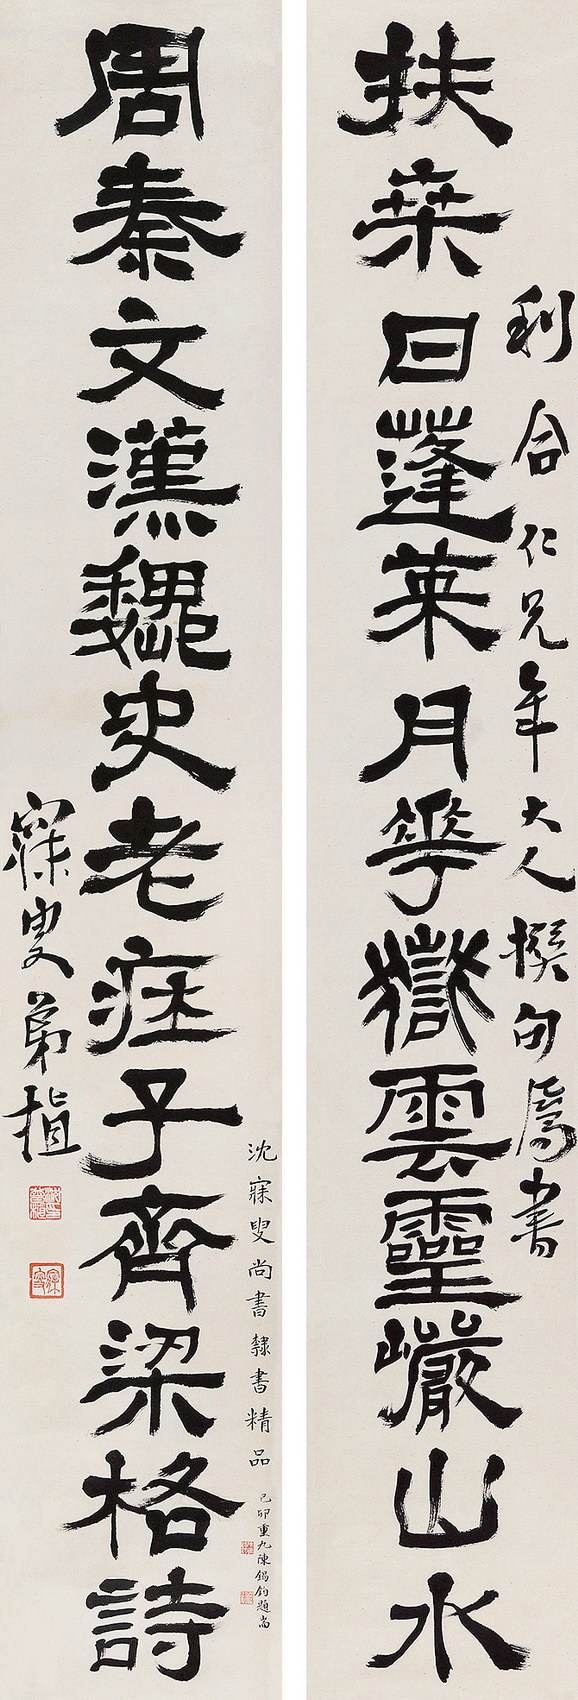 利合仁兄年大人撰句屬書
扶桒日蓬萊月華嶽雲靈巖山水
沈寐叟尚書隸書精品 己卯重九陳錫鈞題耑
周秦文漢魏史老莊子齊梁格詩
寐叟弟植